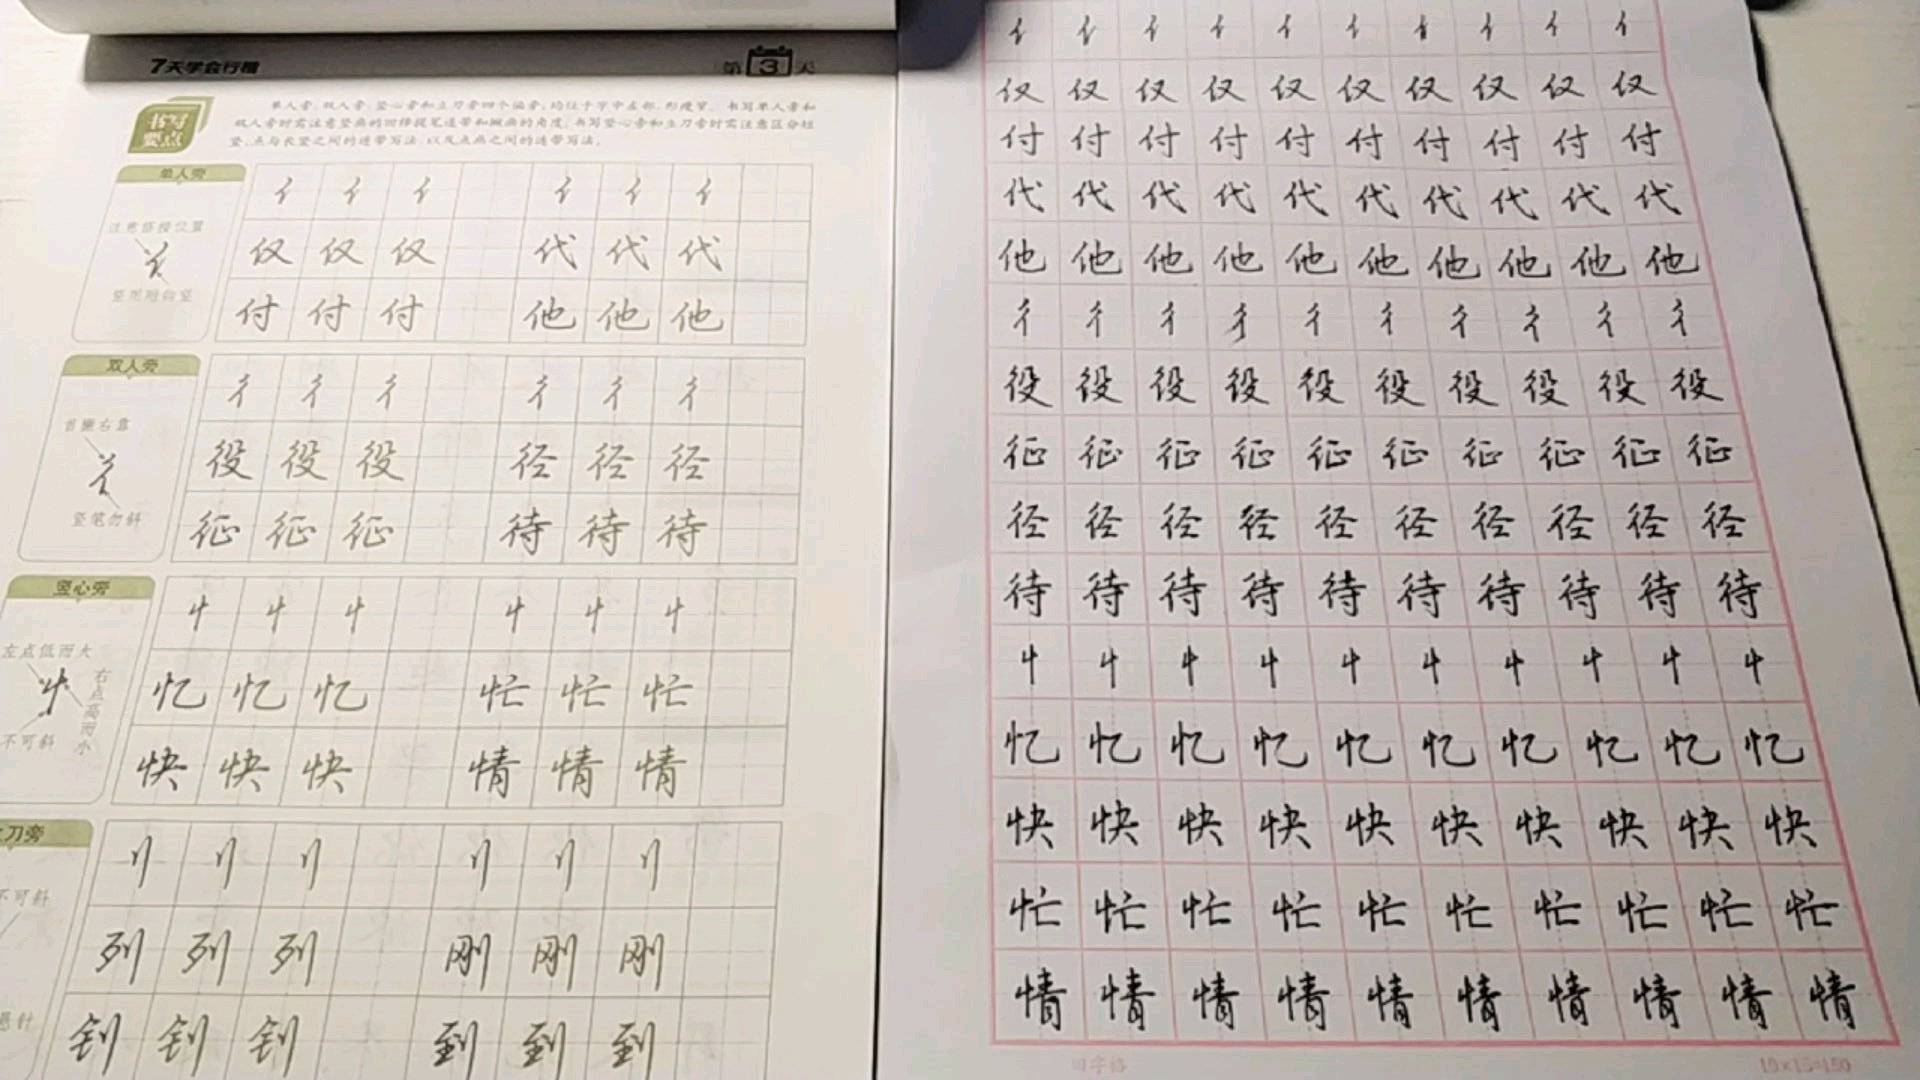 7天学会行楷
第3天
书写
要点
单人旁、双人旁、竖心旁和立刀旁四个偏旁，均位于字中左部，形瘦窄。书写单人旁和
双人旁时需注意竖画的回锋提笔连带和撇画的角度，书写竖心旁和立刀旁时需注意区分短
竖、点与长竖之间的连带写法，以及点画之间的连带写法。
单人旁
注意搭接位置
亻
竖用垂露竖
亻 亻 亻 亻 亻 亻
仅 仅 仅 代 代 代
付 付 付 他 他 他
双人旁
首撇右靠
彳
竖笔勿斜
彳 彳 彳 彳 彳 彳
役 役 役 径 径 径
征 征 征 待 待 待
竖心旁
左点低而大
忄
右点高而小
不可斜
忄 忄 忄 忄 忄 忄
忆 忆 忆 忙 忙 忙
快 快 快 情 情 情
刀旁
不可斜
悬针
刂 刂 刂 刂 刂 刂
列 列 列 刚 刚 刚
钊 钊 钊 到 到 到
亻 亻 亻 亻 亻 亻 亻 亻 亻 亻
仅 仅 仅 仅 仅 仅 仅 仅 仅 仅
付 付 付 付 付 付 付 付 付 付
代 代 代 代 代 代 代 代 代 代
他 他 他 他 他 他 他 他 他 他
彳 彳 彳 彳 彳 彳 彳 彳 彳 彳
役 役 役 役 役 役 役 役 役 役
征 征 征 征 征 征 征 征 征 征
径 径 径 径 径 径 径 径 径 径
待 待 待 待 待 待 待 待 待 待
忄 忄 忄 忄 忄 忄 忄 忄 忄 忄
忆 忆 忆 忆 忆 忆 忆 忆 忆 忆
快 快 快 快 快 快 快 快 快 快
忙 忙 忙 忙 忙 忙 忙 忙 忙 忙
情 情 情 情 情 情 情 情 情 情
田字格
10×15=150